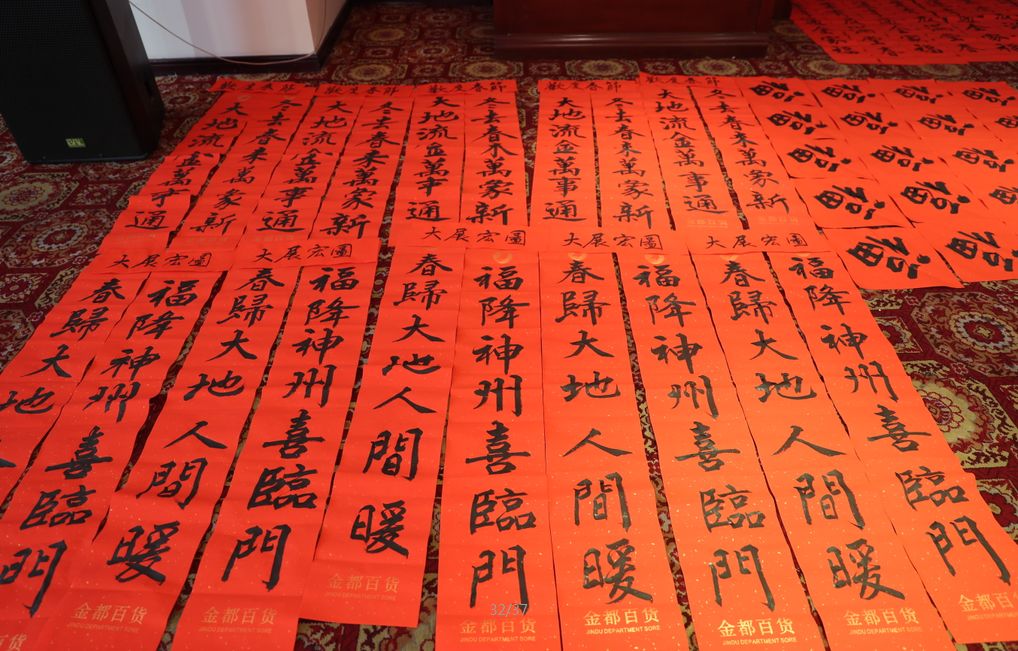 歡度春節
歡度春節
歡度春節
歡度春節
大地流金萬事通
冬去春来萬象新
大地流金萬事通
冬去春来萬象新
大地流金萬事通
冬去春来萬象新
大地流金萬事通
冬去春来萬象新
大地流金萬事通
冬去春来萬象新
福
福
福
福
福
福
福
福
福
福
福
福
福
大展宏圖
大展宏圖
大展宏圖
大展宏圖
春歸大地人
福降神州喜臨門
春歸大地人間暖
福降神州喜臨門
春歸大地人間暖
福降神州喜臨門
春歸大地人間暖
福降神州喜臨門
春歸大地人間暖
福降神州喜臨門
百货
金都百货
JINDU DEPARTMENT SORE
金都百货
JINDU DEPARTMENT SORE
金都百货
JINDU DEPARTMENT SORE
金都百货
JINDU DEPARTMENT SORE
金都百货
JINDU DEPARTMENT SORE
金都百货
JINDU DEPARTMENT SORE
金都百货
JINDU DEPARTMENT SORE
金都百货
32/37